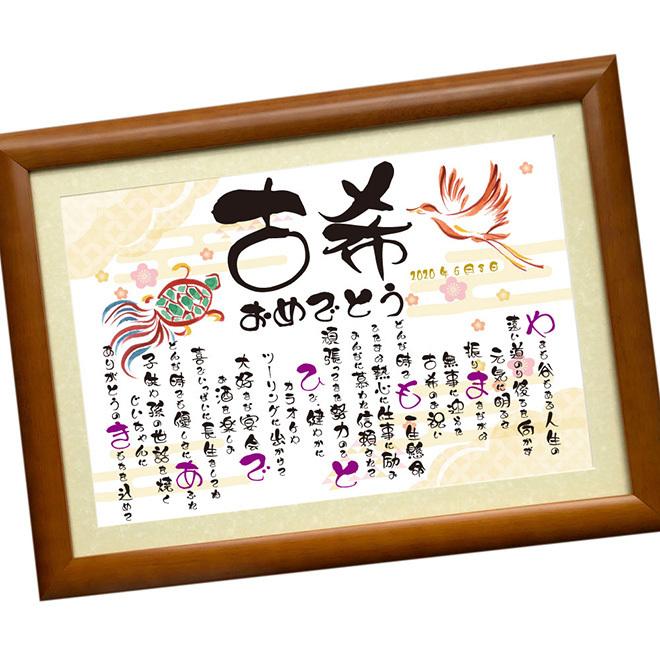 古希
おめでとう
2020年6月3日
やまも谷もある人生の
遠い道のり後ろを向かず
元気に明るく
振りまきながら
無事に迎えた
古希のお祝い
どんな時も一生懸命
ひたすら熱心に仕事に励み
みんなに慕われ信頼されて
頑張ってきた努力のひと
ひび、健やかに
カラオケや
ツーリングに出かけて
大好きな宴会で
お酒を楽しみ
喜びいっぱいに長生きしてね
どんな時でも優しさにあふれ
子供や孫の世話を焼く
じいちゃんに
ありがとうのきもちを込めて